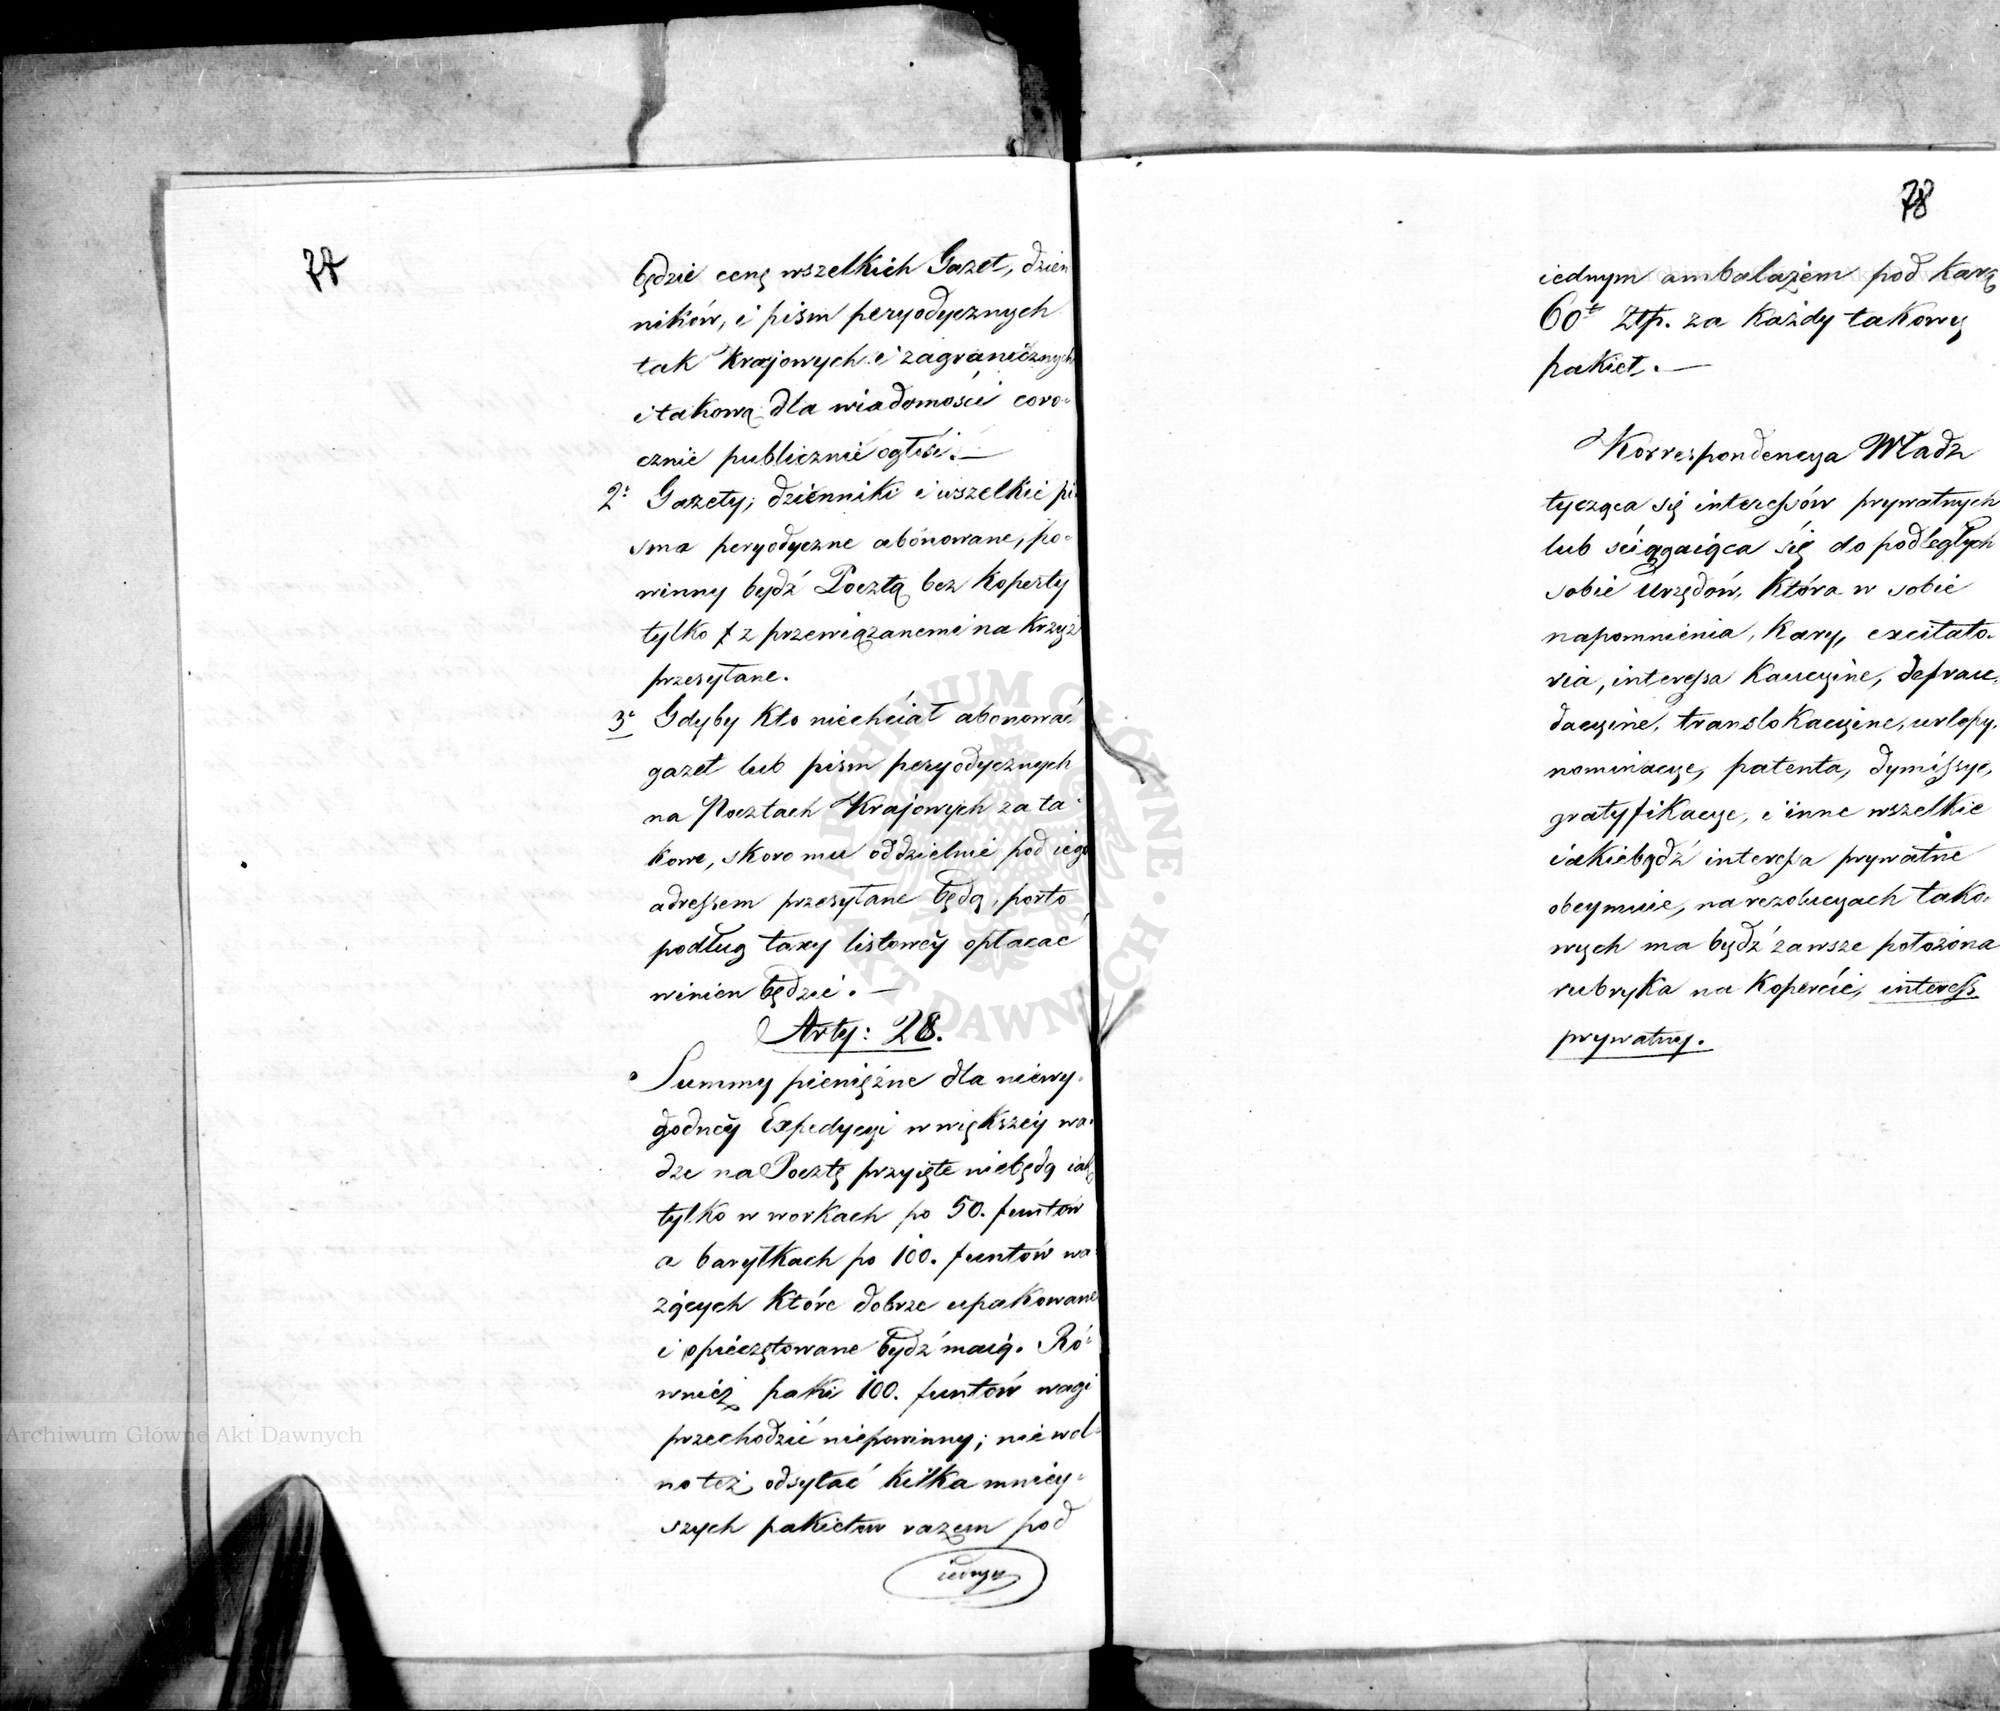 77
będzie cenę wszelkich Gazet, dzien
ników, i pism peryodycznych
tak Krajowych i zagranicznych
i takową dla wiadomości coro-
cznie publicznie ogłosi. —
2° Gazety, dzienniki i wszelkie pi
sma peryodyczne abonowane, po-
winny bydź Pocztą bez Koperty
tylko z przewiązanemi na Krzyż
przesyłane.
3° Gdyby Kto niechciał abonować
gazet lub pism peryodycznych
na Pocztach Krajowych za ta-
kowe, skoro mu oddzielnie pod iego
adressem przesyłane będą, porto
podług taxy listowey opłacać
winien będzie. —
Arty: 28.
Summy pieniężne dla niewy-
godney Expedycyi w większey wa-
dze na Pocztę przyięte niebędą iak
tylko w workach po 50. funtów
a baryłkach po 100. funtów wa-
żących które dobrze upakowane
i opieczętowane bydź maią. Ró-
wnież paki 100. funtów wagi
przechodzić niepowinny; nie wol-
no też odsyłać kilka mniey-
szych pakietów razem pod
iednym
78
iednym ambalażem pod Karą
60t Ztp. za Każdy takowy
pakiet. —
Korrespondencya Władz
tycząca się interessów prywatnych
lub ściągaiąca się do podległych
sobie Urzędów, Która w sobie
napomnienia, Kary, excitato-
ria, interessa Kaucyine, defrau-
dacyine, translokacyine, urlopy,
nominacye, patenta, dymissye,
gratyfikacye, i inne wszelkie
iakiebądź interessa prywatne
obeymuie, na rezolucyach tako-
wych ma bydź zawsze położona
rubryka na Kopercie, interess
prywatny.
Archiwum Główne Akt Dawnych
ARCHIWUM GŁÓWNE AKT DAWNYCH